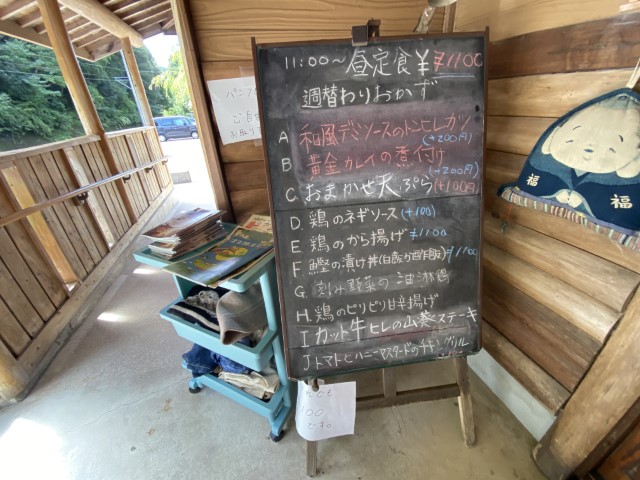 11:00〜 昼定食 ¥1100
週替わりおかず
A 和風デミソースのトンヒレカツ
(+200円)
B 黄金カレイの煮付け
+200円)
C おまかせ天ぷら(+100円)
D. 鶏のネギソース(+100)
E 鶏のから揚げ ¥1100
F. 鰹の漬け丼(白飯が酢飯) ¥1100
G. 刻み野菜の油淋鶏
H. 鶏のピリピリ甘辛揚げ
I カット牛ヒレの山葵ステーキ
J トマトとハニーマスタードのチキングリル
福
福